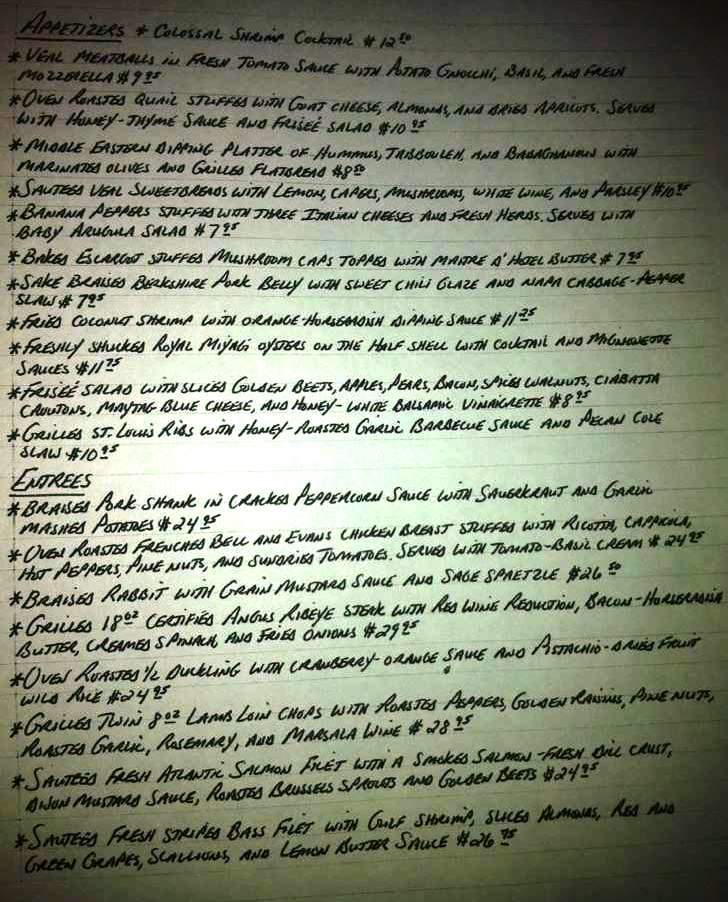 APPETIZERS * COLOSSAL SHRIMP COCKTAIL $12 50
* VEAL MEATBALLS IN FRESH TOMATO SAUCE WITH POTATO GNOCCHI, BASIL, AND FRESH
MOZZERELLA $9 95
* OVEN ROASTED QUAIL STUFFED WITH GOAT CHEESE, ALMONDS, AND DRIED APRICOTS. SERVED
WITH HONEY-THYME SAUCE AND FRISEÉ SALAD $10 95
* MIDDLE EASTERN DIPPING PLATTER OF HUMMUS, TABBOULEH, AND BABAGHANOUS WITH
MARINATED OLIVES AND GRILLED FLATBREAD $8 50
* SAUTEED VEAL SWEETBREADS WITH LEMON, CAPERS, MUSHROOMS, WHITE WINE, AND PARSLEY $10 95
* BANANA PEPPERS STUFFED WITH THREE ITALIAN CHEESES AND FRESH HERBS. SERVED WITH
BABY ARUGULA SALAD $7 95
* BAKED ESCARGOT STUFFED MUSHROOM CAPS TOPPED WITH MAITRE D' HOTEL BUTTER $7 95
* SAKE BRAISED BERKSHIRE PORK BELLY WITH SWEET CHILI GLAZE AND NAPA CABBAGE-PEPPER
SLAW $7 95
* FRIED COCONUT SHRIMP WITH ORANGE-HORSERADISH DIPPING SAUCE $11 25
* FRESHLY SHUCKED ROYAL MIYAGI OYSTERS ON THE HALF SHELL WITH COCKTAIL AND MIGNONETTE
SAUCES $11 75
* FRISEÉ SALAD WITH SLICED GOLDEN BEETS, APPLES, PEARS, BACON, SPICED WALNUTS, CIABATTA
CROUTONS, MAYTAG BLUE CHEESE, AND HONEY-WHITE BALSAMIC VINAIGRETTE $8 95
* GRILLED ST. LOUIS RIBS WITH HONEY-ROASTED GARLIC BARBECUE SAUCE AND PECAN COLE
SLAW $10 95
ENTREES
* BRAISED PORK SHANK IN CRACKED PEPPERCORN SAUCE WITH SAUERKRAUT AND GARLIC
MASHED POTATOES $24 95
* OVEN ROASTED FRENCHED BELL AND EVANS CHICKEN BREAST STUFFED WITH RICOTTA, CAPPICOLA,
HOT PEPPERS, PINE NUTS, AND SUNDRIED TOMATOES. SERVED WITH TOMATO-BASIL CREAM $24 95
* BRAISED RABBIT WITH GRAIN MUSTARD SAUCE AND SAGE SPAETZLE $26 50
* GRILLED 18 OZ CERTIFIED ANGUS RIBEYE STEAK WITH RED WINE REDUCTION, BACON-HORSERADISH
BUTTER, CREAMED SPINACH, AND FRIED ONIONS $29 95
* OVEN ROASTED 1/2 DUCKLING WITH CRANBERRY-ORANGE SAUCE AND PISTACHIO-DRIED FRUIT
WILD RICE $24 95
* GRILLED TWIN 8 OZ LAMB LOIN CHOPS WITH ROASTED PEPPERS, GOLDEN RAISINS, PINE NUTS,
ROASTED GARLIC, ROSEMARY, AND MARSALA WINE $28 95
* SAUTEED FRESH ATLANTIC SALMON FILET WITH A SMOKED SALMON-FRESH DILL CRUST,
DIJON MUSTARD SAUCE, ROASTED BRUSSELS SPROUTS AND GOLDEN BEETS $24 95
* SAUTEED FRESH STRIPED BASS FILET WITH GULF SHRIMP, SLICED ALMONDS, RED AND
GREEN GRAPES, SCALLIONS, AND LEMON BUTTER SAUCE $26 95